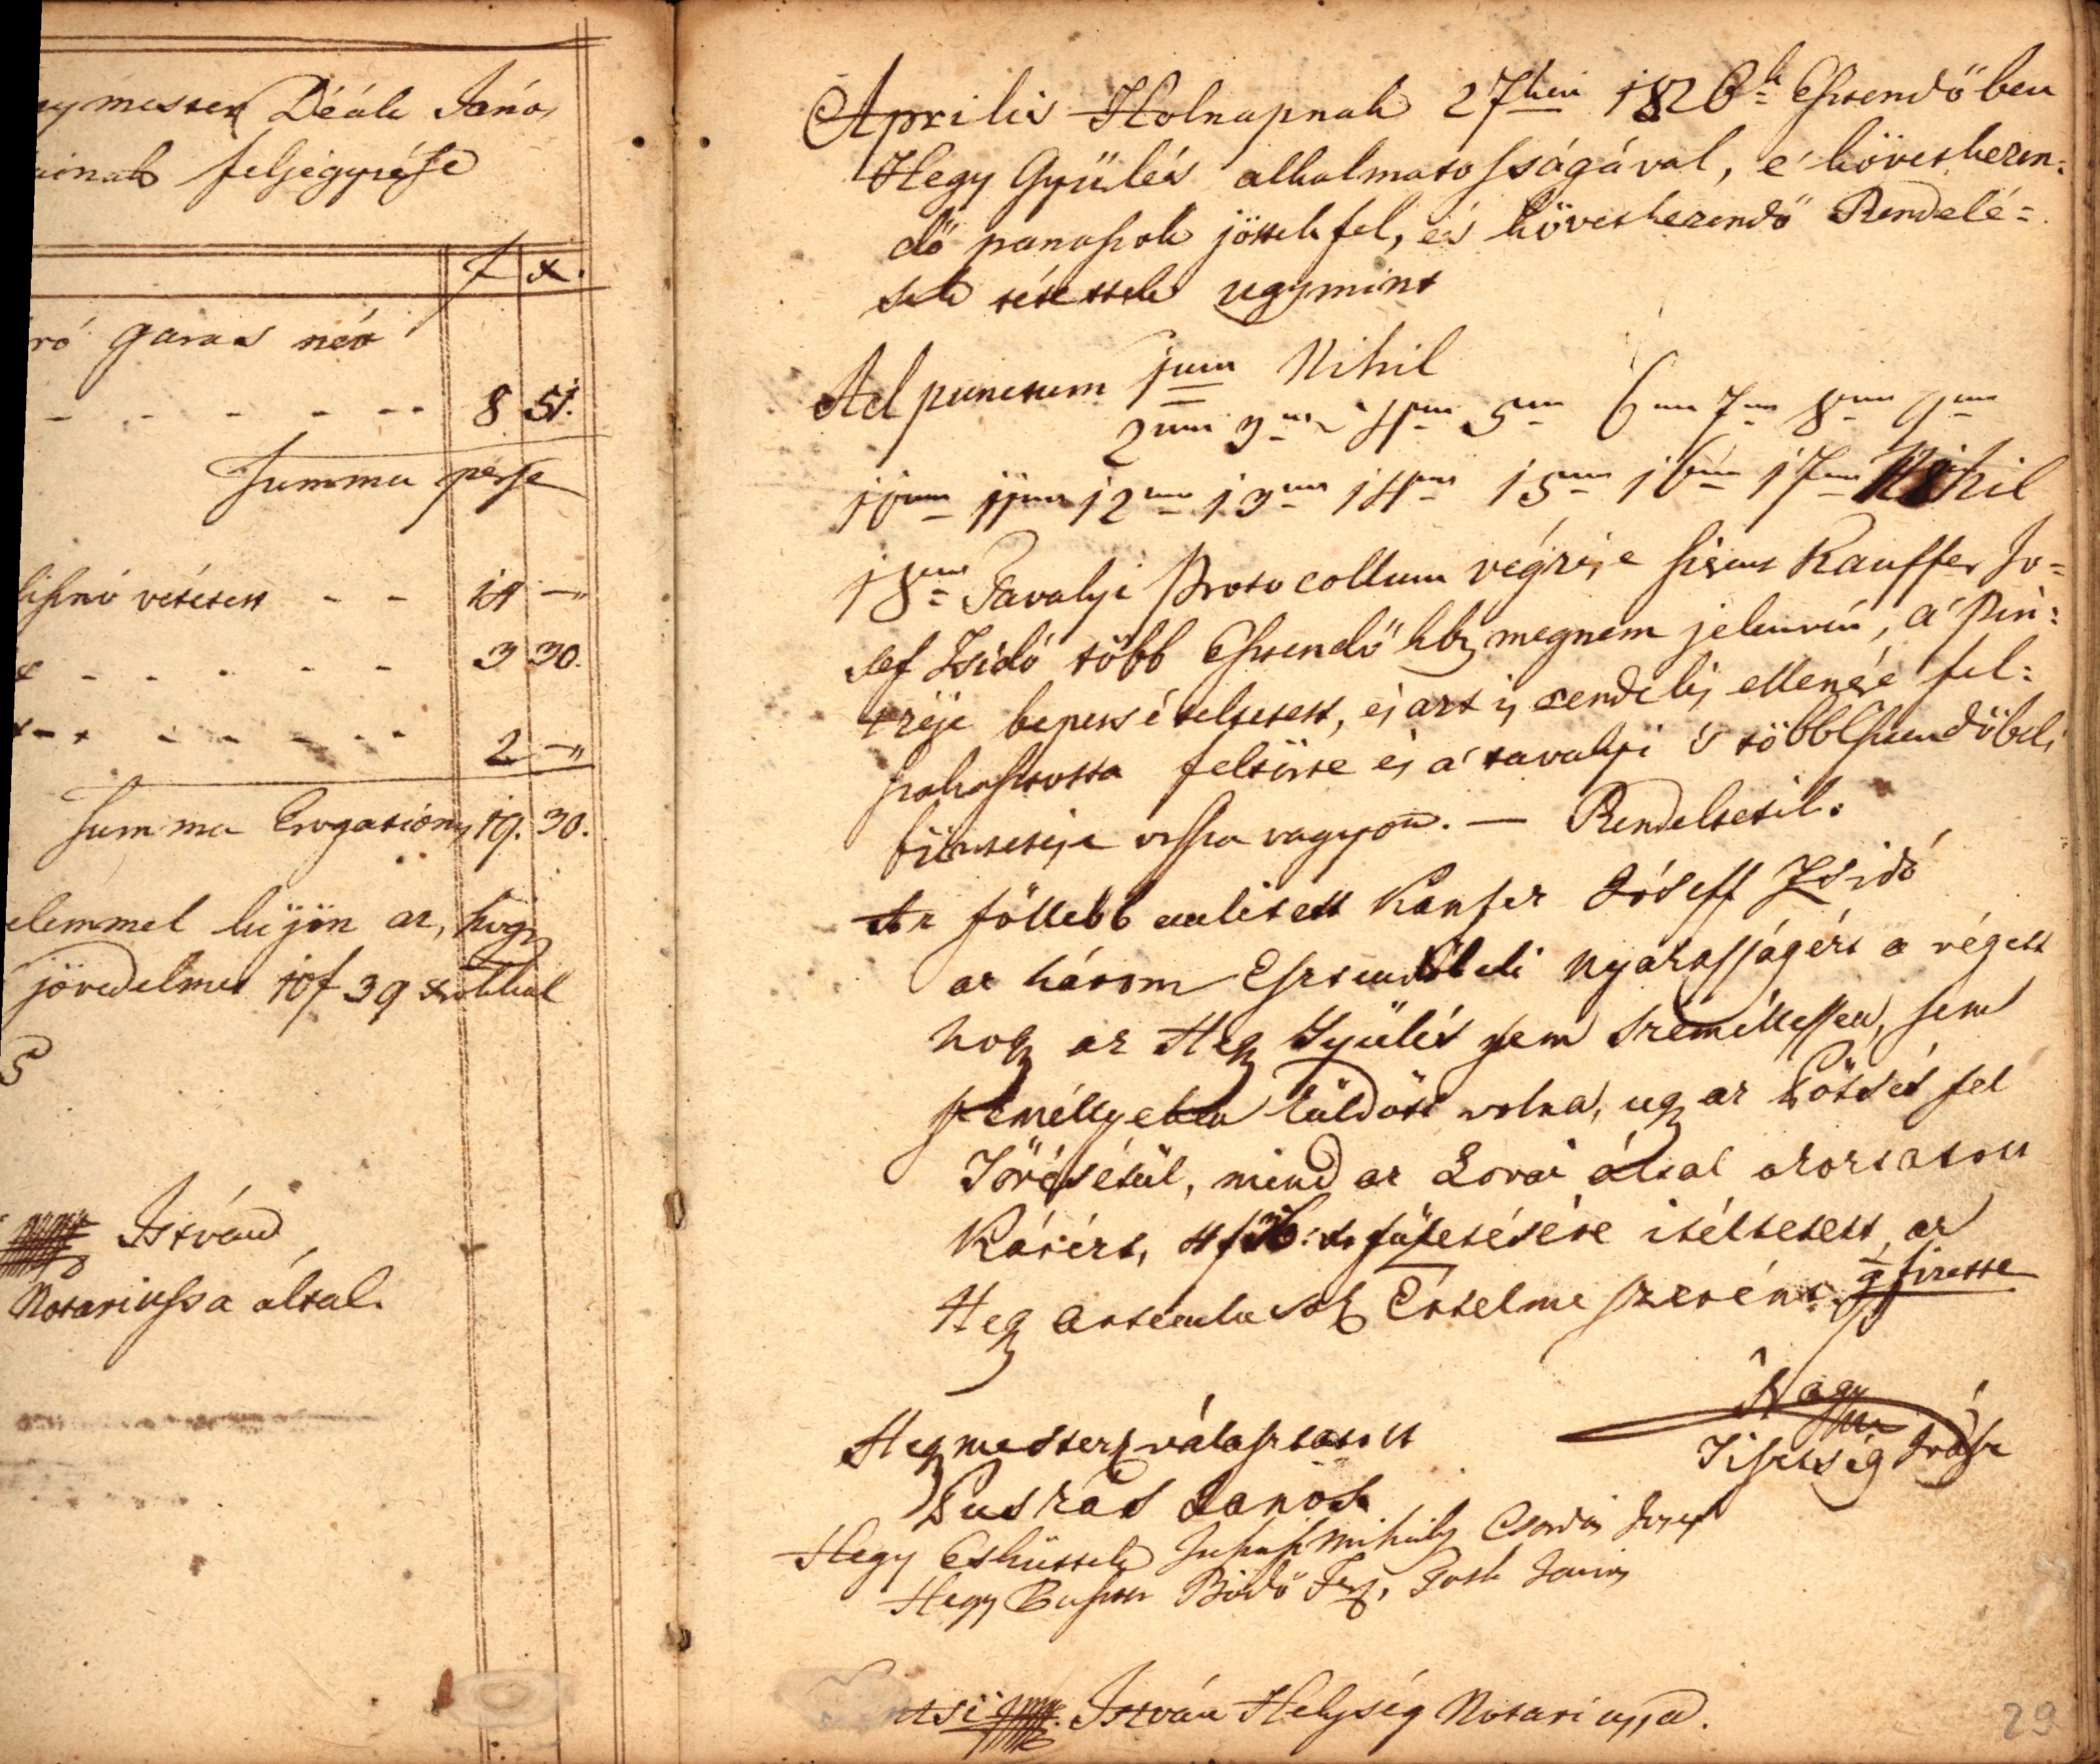 Déák János
feljegyzése
f x.
garas név
8 51.
Summa perse
vétetett - - 14 —"
3 30.
2 —"
Summa Erogationis 19. 30.
elemmel küjön az, hogy
jövedelmet 10f 39 xrokkal
István
Notariussa által.
Aprilis Holnapnak 27kén 1826k Esztendőben
Hegy Gyülés alkalmatosságával, e' következen:
dő panaszok jöttek fel, és következendő Rendelé=
sek tétettek ugymint
Ad punctum 1um Nihil
2um 3um 4um 5um 6um 7um 8um 9um
10um 11um 12um 13um 14um 15um 16um 17um Nihil
18um Tavalyi Protocollum végzése szerént Kauffer Jo=
sef Zsidó több Esztendőkbz megnem jelenvén, a' Pin:
tzéje bepetsételtetett, és azt is rendelés ellenére fel:
szakasztotta feltörte és a' tavalyi 's több Esztendőbeli
büntetése vissza vagyon. — Rendeltetik:
Az föllebb emlitett Kaufer Jóseff Zsidó
az három Esztendőbeli Makatsságért a végett
hogy az Hegy Gyülés sem Személlyessen, sem
személlyében küldött volna, ugy az Pötsét fel
Törésétül, mind az Lovai által okozatott
Kárért, 4 f fizetésére itéltetett az
Hegy Articulusok Értelme szerént fizette
Hegymesternek választatott
Puskás Janos
Nagy
Tisztség
Hegy Esküttek Juhász Mihály Csordás Josef
Hegy Pásztor Bödő Ferz, Tóth János
István Helység Notariussa.
29